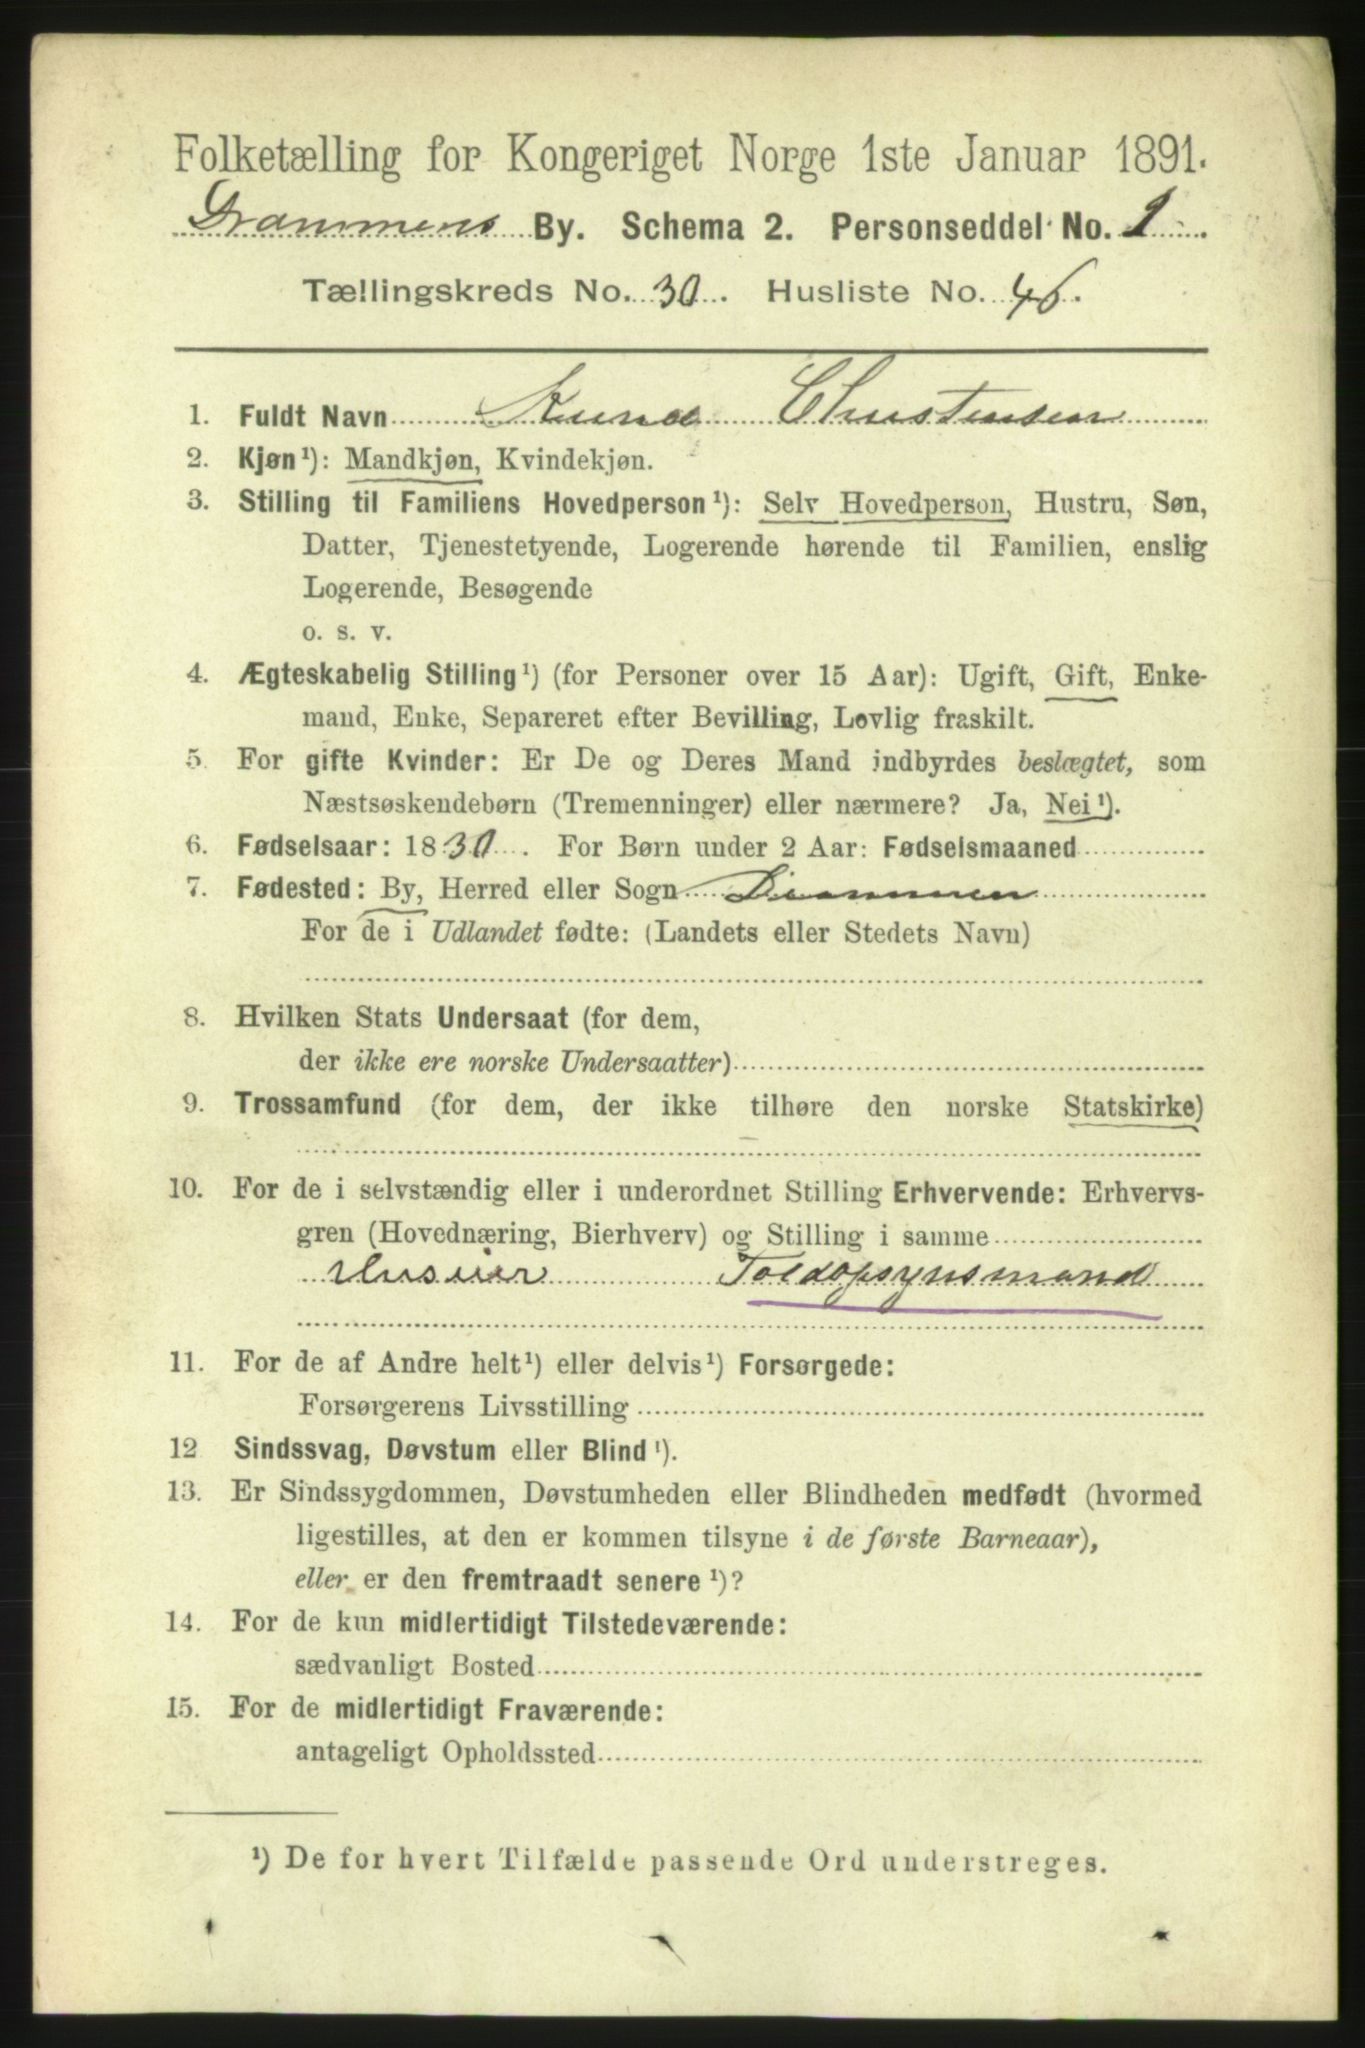 Folketælling for Kongeriget Norge 1ste Januar 1891.
Drammens By. Schema 2. Personseddel No. 1
Tællingskreds No. 30. Husliste No. 46.
1. Fuldt Navn Knud Christensen
2. Kjøn¹): Mandkjøn, Kvindekjøn.
3. Stilling til Familiens Hovedperson¹): Selv Hovedperson, Hustru, Søn,
Datter, Tjenestetyende, Logerende hørende til Familien, enslig
Logerende, Besøgende
o. s. v.
4. Ægteskabelig Stilling¹) (for Personer over 15 Aar): Ugift, Gift, Enke-
mand, Enke, Separeret efter Bevilling, Lovlig fraskilt.
5. For gifte Kvinder: Er De og Deres Mand indbyrdes beslægtet, som
Næstsøskendebørn (Tremenninger) eller nærmere? Ja, Nei¹).
6. Fødselsaar: 1830. For Børn under 2 Aar: Fødselsmaaned
7. Fødested: By, Herred eller Sogn Drammen
For de i Udlandet fødte: (Landets eller Stedets Navn)
8. Hvilken Stats Undersaat (for dem,
der ikke ere norske Undersaatter)
9. Trossamfund (for dem, der ikke tilhøre den norske Statskirke)
10. For de i selvstændig eller i underordnet Stilling Erhvervende: Erhvervs-
gren (Hovednæring, Bierhverv) og Stilling i samme
Toldopsynsmand
11. For de af Andre helt¹) eller delvis¹) Forsørgede:
Forsørgerens Livsstilling
12 Sindssvag, Døvstum eller Blind¹).
13. Er Sindssygdommen, Døvstumheden eller Blindheden medfødt (hvormed
ligestilles, at den er kommen tilsyne i de første Barneaar),
eller er den fremtraadt senere¹)?
14. For de kun midlertidigt Tilstedeværende:
sædvanligt Bosted
15. For de midlertidigt Fraværende:
antageligt Opholdssted
¹) De for hvert Tilfælde passende Ord understreges.